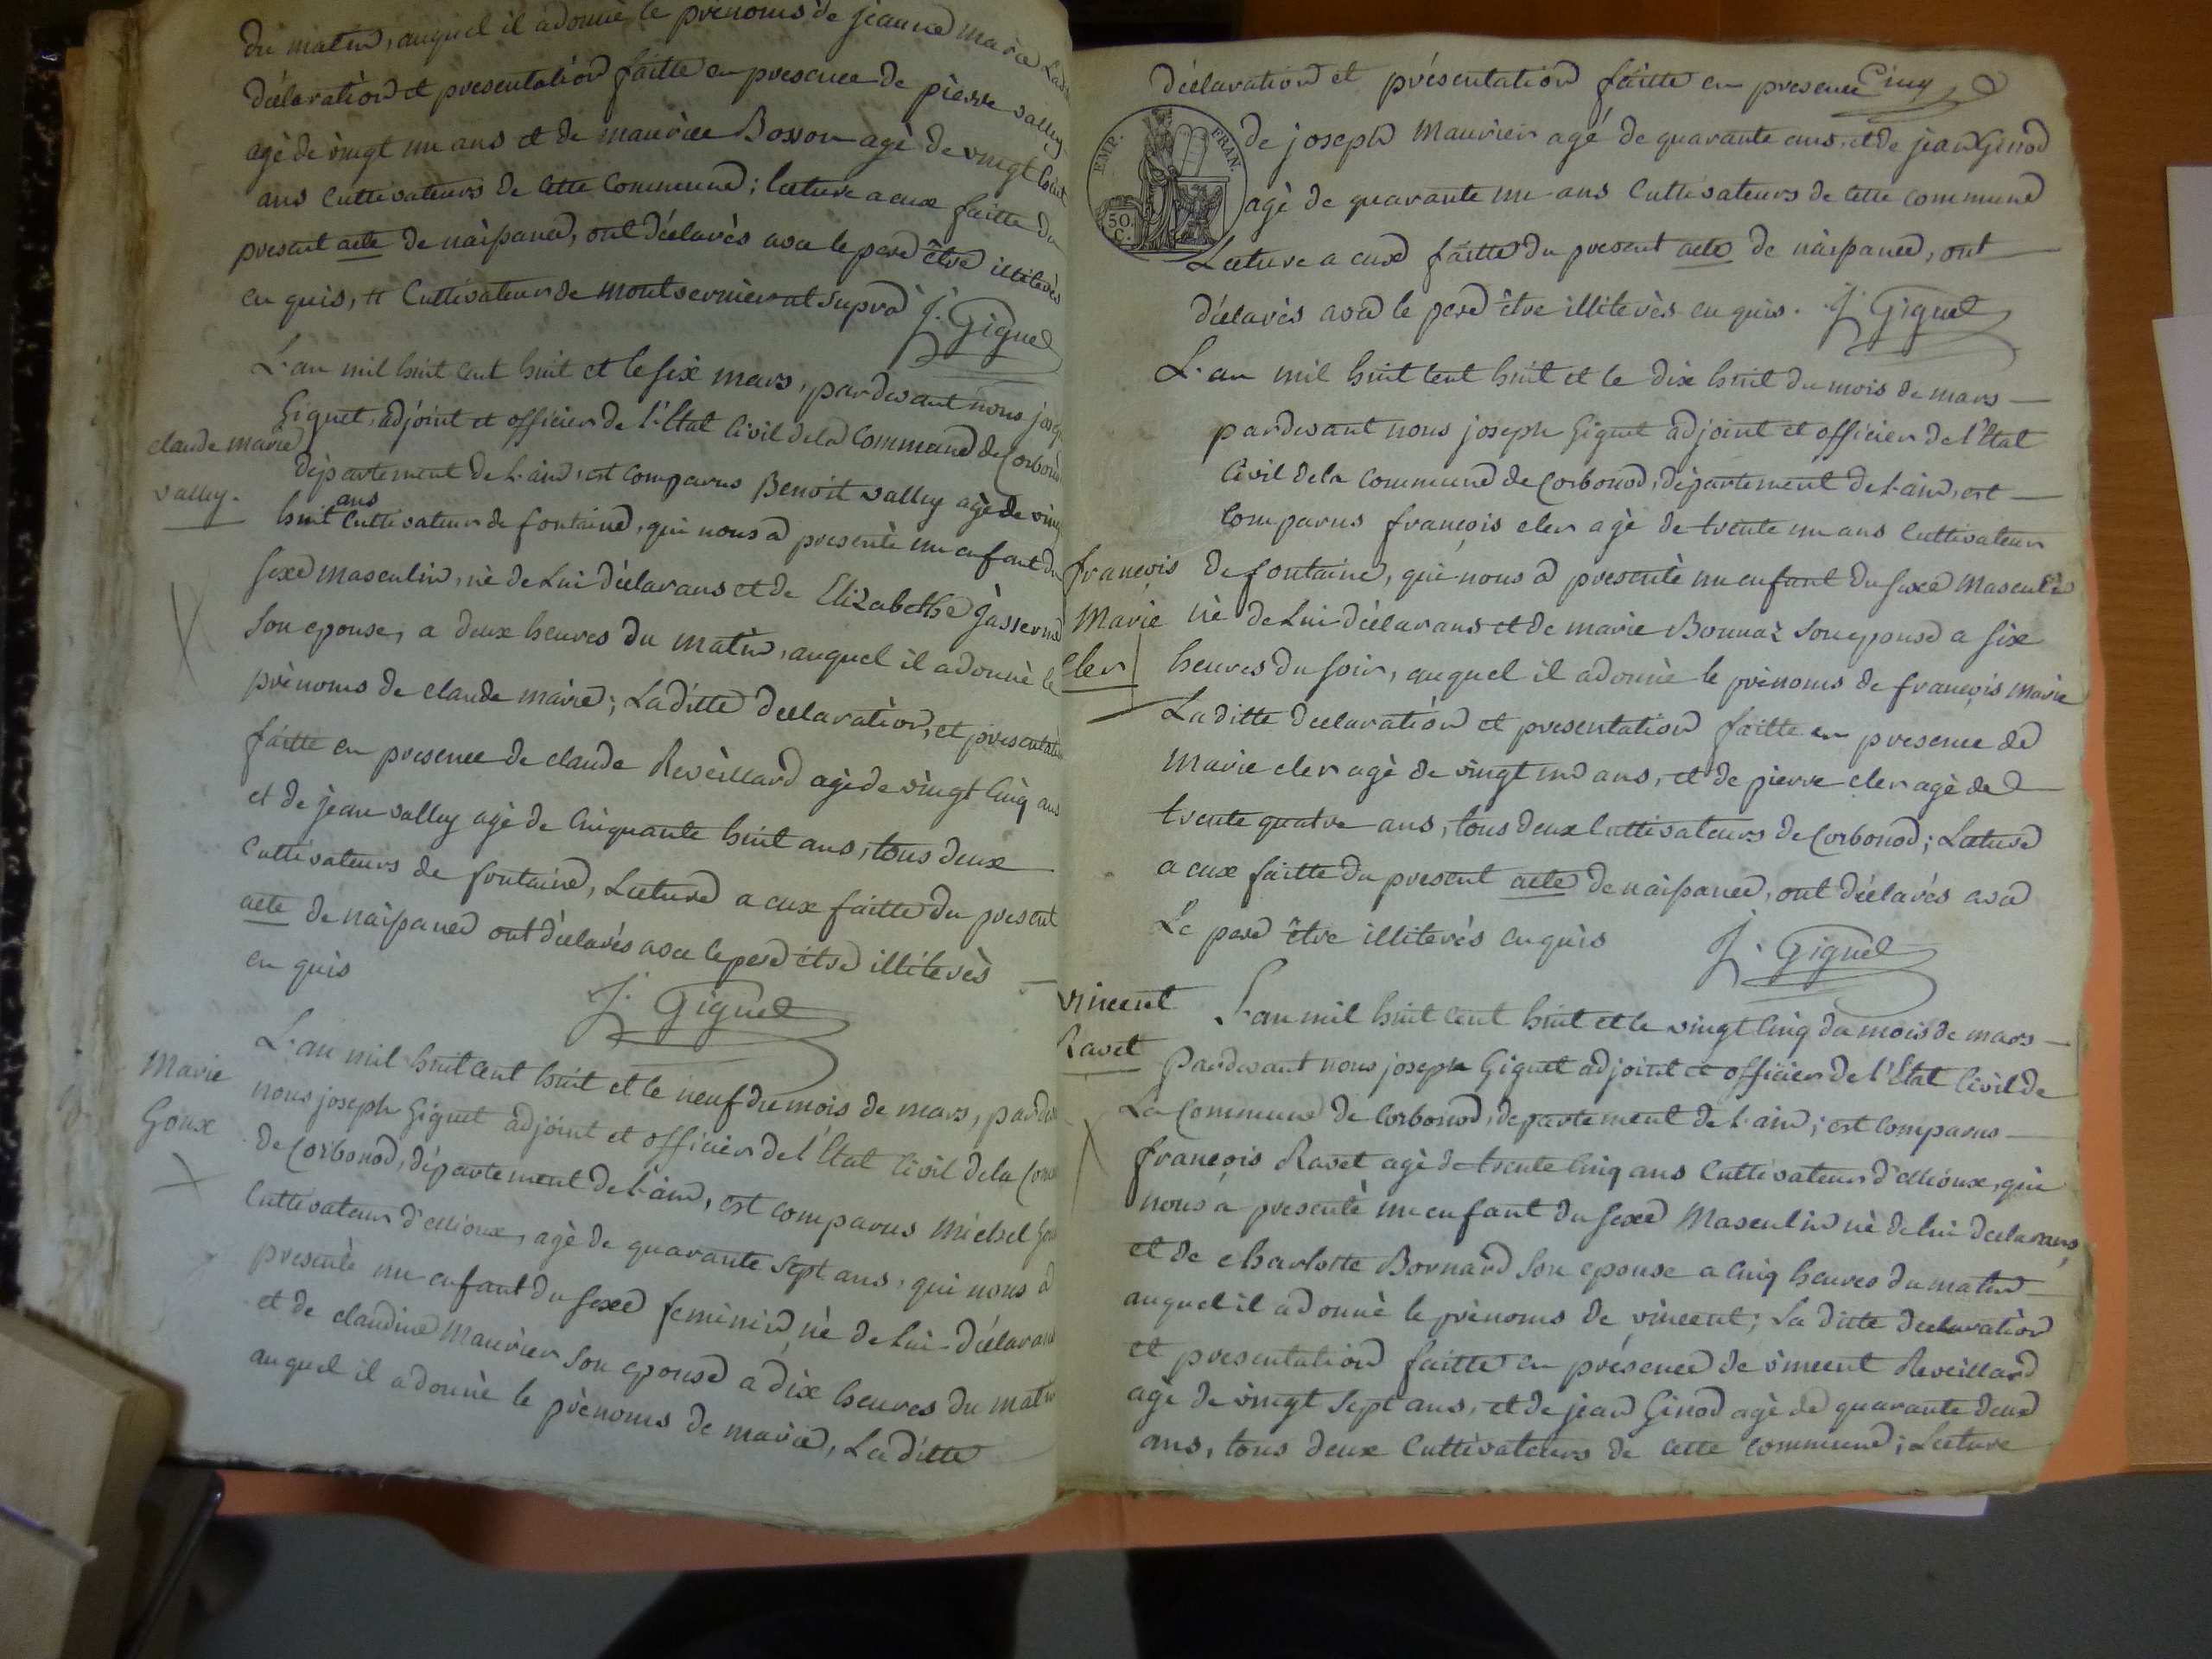 du matin, auquel il a donné le prénoms de jeanne marie Ladi
déclaration et presentation faitte en presence de pierre vallry
agè de vingt un ans et de mauriee Bosson agè de vingt huit
ans Cultivateurs de cette Commune; lecture a eux faitte du
present acte de naissance, ont déclarès avec le pere être illiterès
en quis, # Cultivateur de montvernier ut supra J. Giguet
L'an mil huit cent huit et le six mars, pardevant nous jose
Giguet, adjoint et officier de l'Etat Civil de la Commune de Corbono
claude marie
vallry.
département de l'ain, est comparus Benoit vallry agè de ving
huit ans Cultivateur de fontaine, qui nous a presentè un enfant du
sexe masculin, nè de Lui déclarans et de Elizabethe Jasserand
son epouse, a deux heures du matin, auquel il a donnè le
prènoms de claude marie; Laditte declaration, et presentation
faitte en presence de claude Revèillard agè de vingt Cinq ans
et de jean vallry agè de Cinquante huit ans, tous deux
Cultivateurs de fontaine, Lecture a eux faitte du present
acte de naissance ont déclarès avec le pere être illiterès
en quis
J. Giguet
Marie
Goux
L'an mil huit cent huit et le neuf du mois de mars, pardev
nous joseph Giguet adjoint et officier de l'Etat Civil de la Com
de Corbonod, département de l'ain, est comparus Michel Gou
Cultivateur d'etlioux, agè de quarante sept ans, qui nous a
presentè un enfant du sexe feminin, nè de Lui déclarans
et de claudine Maurier son epouse a dix heures du matin
auquel il a donnè le prènoms de marie, Laditte
Cinq
déclaration et présentation faitte en presence
EMP. FRAN.
50 C.
de joseph Maurier agé de quarante ans, et de jean Ginod
agè de quarante un ans Cultivateurs de cette commune
Lecture a eux faitte du present acte de naissance, ont
déclarès avec le pere être illiterès en quis. J. Giguet
L'an mil huit cent huit et le dix huit du mois de mars
pardevant nous joseph Giguet adjoint et officier de l'Etat
Civil de la Commune de Corbonod, département de l'ain, est
Comparus françois cler agè de trente un ans Cultivateur
françois
Marie
Cler
de fontaine, qui nous a presentè un enfant du sexe Masculin
nè de Lui déclarans et de marie Bonnaz son epouse a six
heures du soir, auquel il a donnè le prènoms de françois Marie
Laditte declaration et presentation faitte en presence de
Marie cler agè de vingt un ans, et de pierre cler agè de
trente quatre ans, tous deux Cultivateurs de Corbonod; Lecture
a eux faitte du present acte de naissance, ont déclarès avec
Le pere être illiterès en quis J. Giguet
vincent
Ravet
L'an mil huit cent huit et le vingt Cinq du mois de mars
Pardevant nous joseph Giguet adjoint et officier de l'Etat Civil de
La Commune de Corbonod, departement de l'ain; est Comparus
françois Ravet agè de trente Cinq ans Cultivateur d'etlioux, qui
nous a presentè un enfant du sexe Masculin nè de lui declarans,
et de charlotte Bornard son epouse a Cinq heures du matin
auquel il a donnè le prènoms de vincent; La ditte declaration
et presentation faitte en présence de vincent Reveillard
agè de vingt sept ans, et de jean Ginod agè de quarante deux
ans, tous deux Cultivateurs de cette commune; Lecture